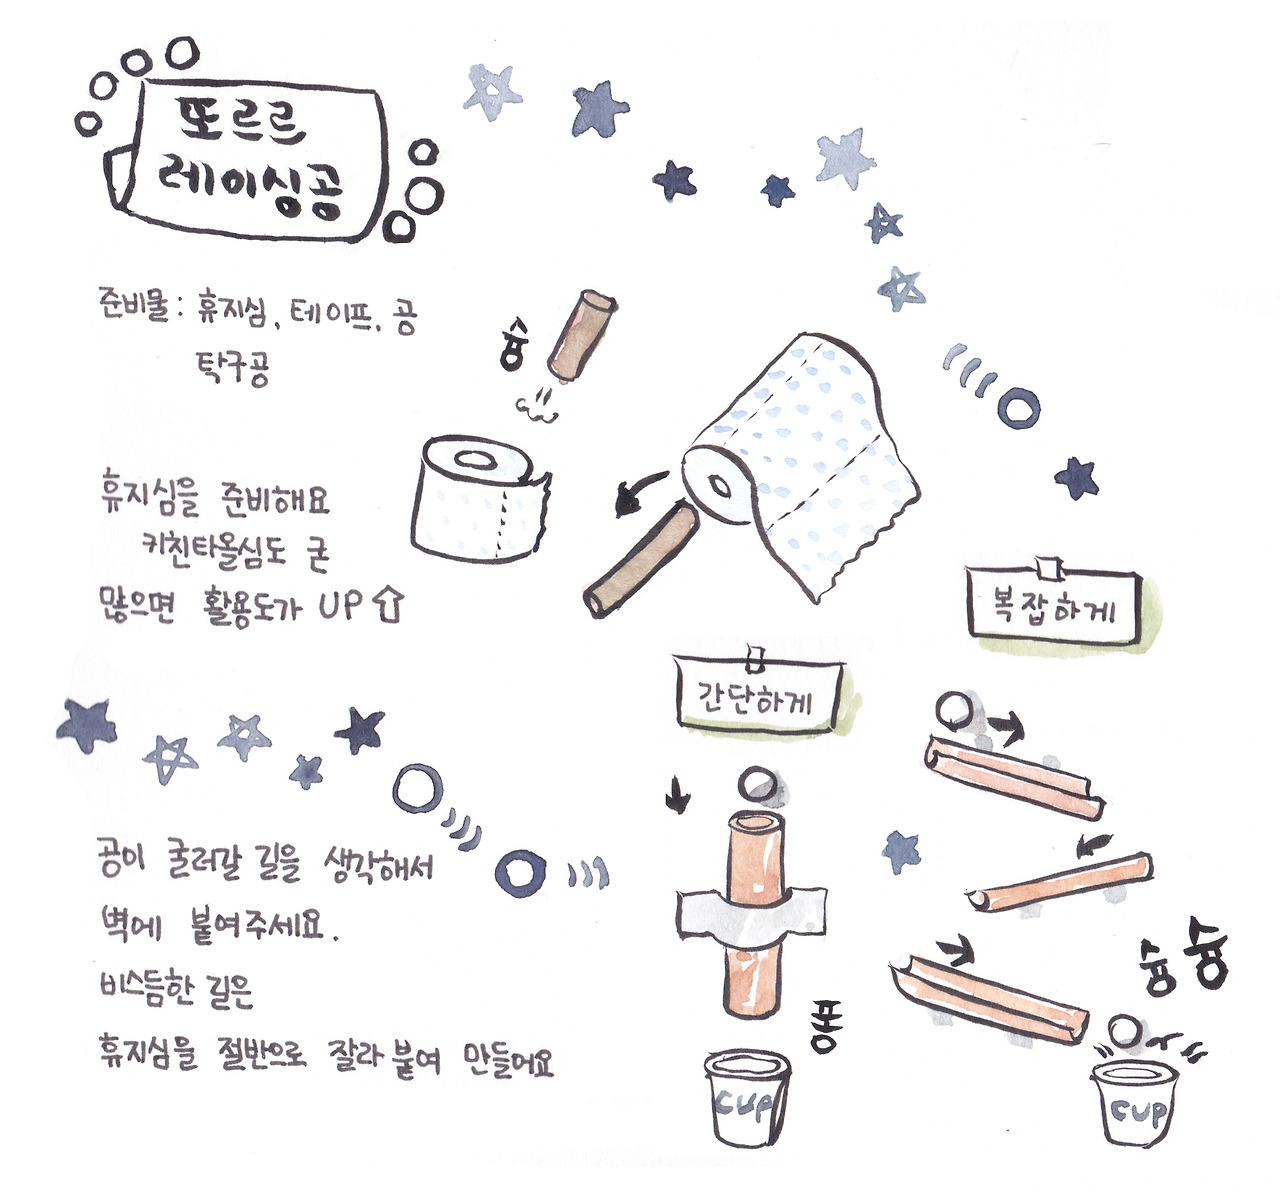 또르르
레이싱공
준비물 : 휴지심, 테이프, 공
탁구공
슝
휴지심을 준비해요
키친타올심도 굳
많으면 활용도가 UP
복잡하게
간단하게
공이 굴러갈 길을 생각해서
벽에 붙여주세요.
비스듬한 길은
휴지심을 절반으로 잘라 붙여 만들어요
슝 슝
퐁
CUP
CUP